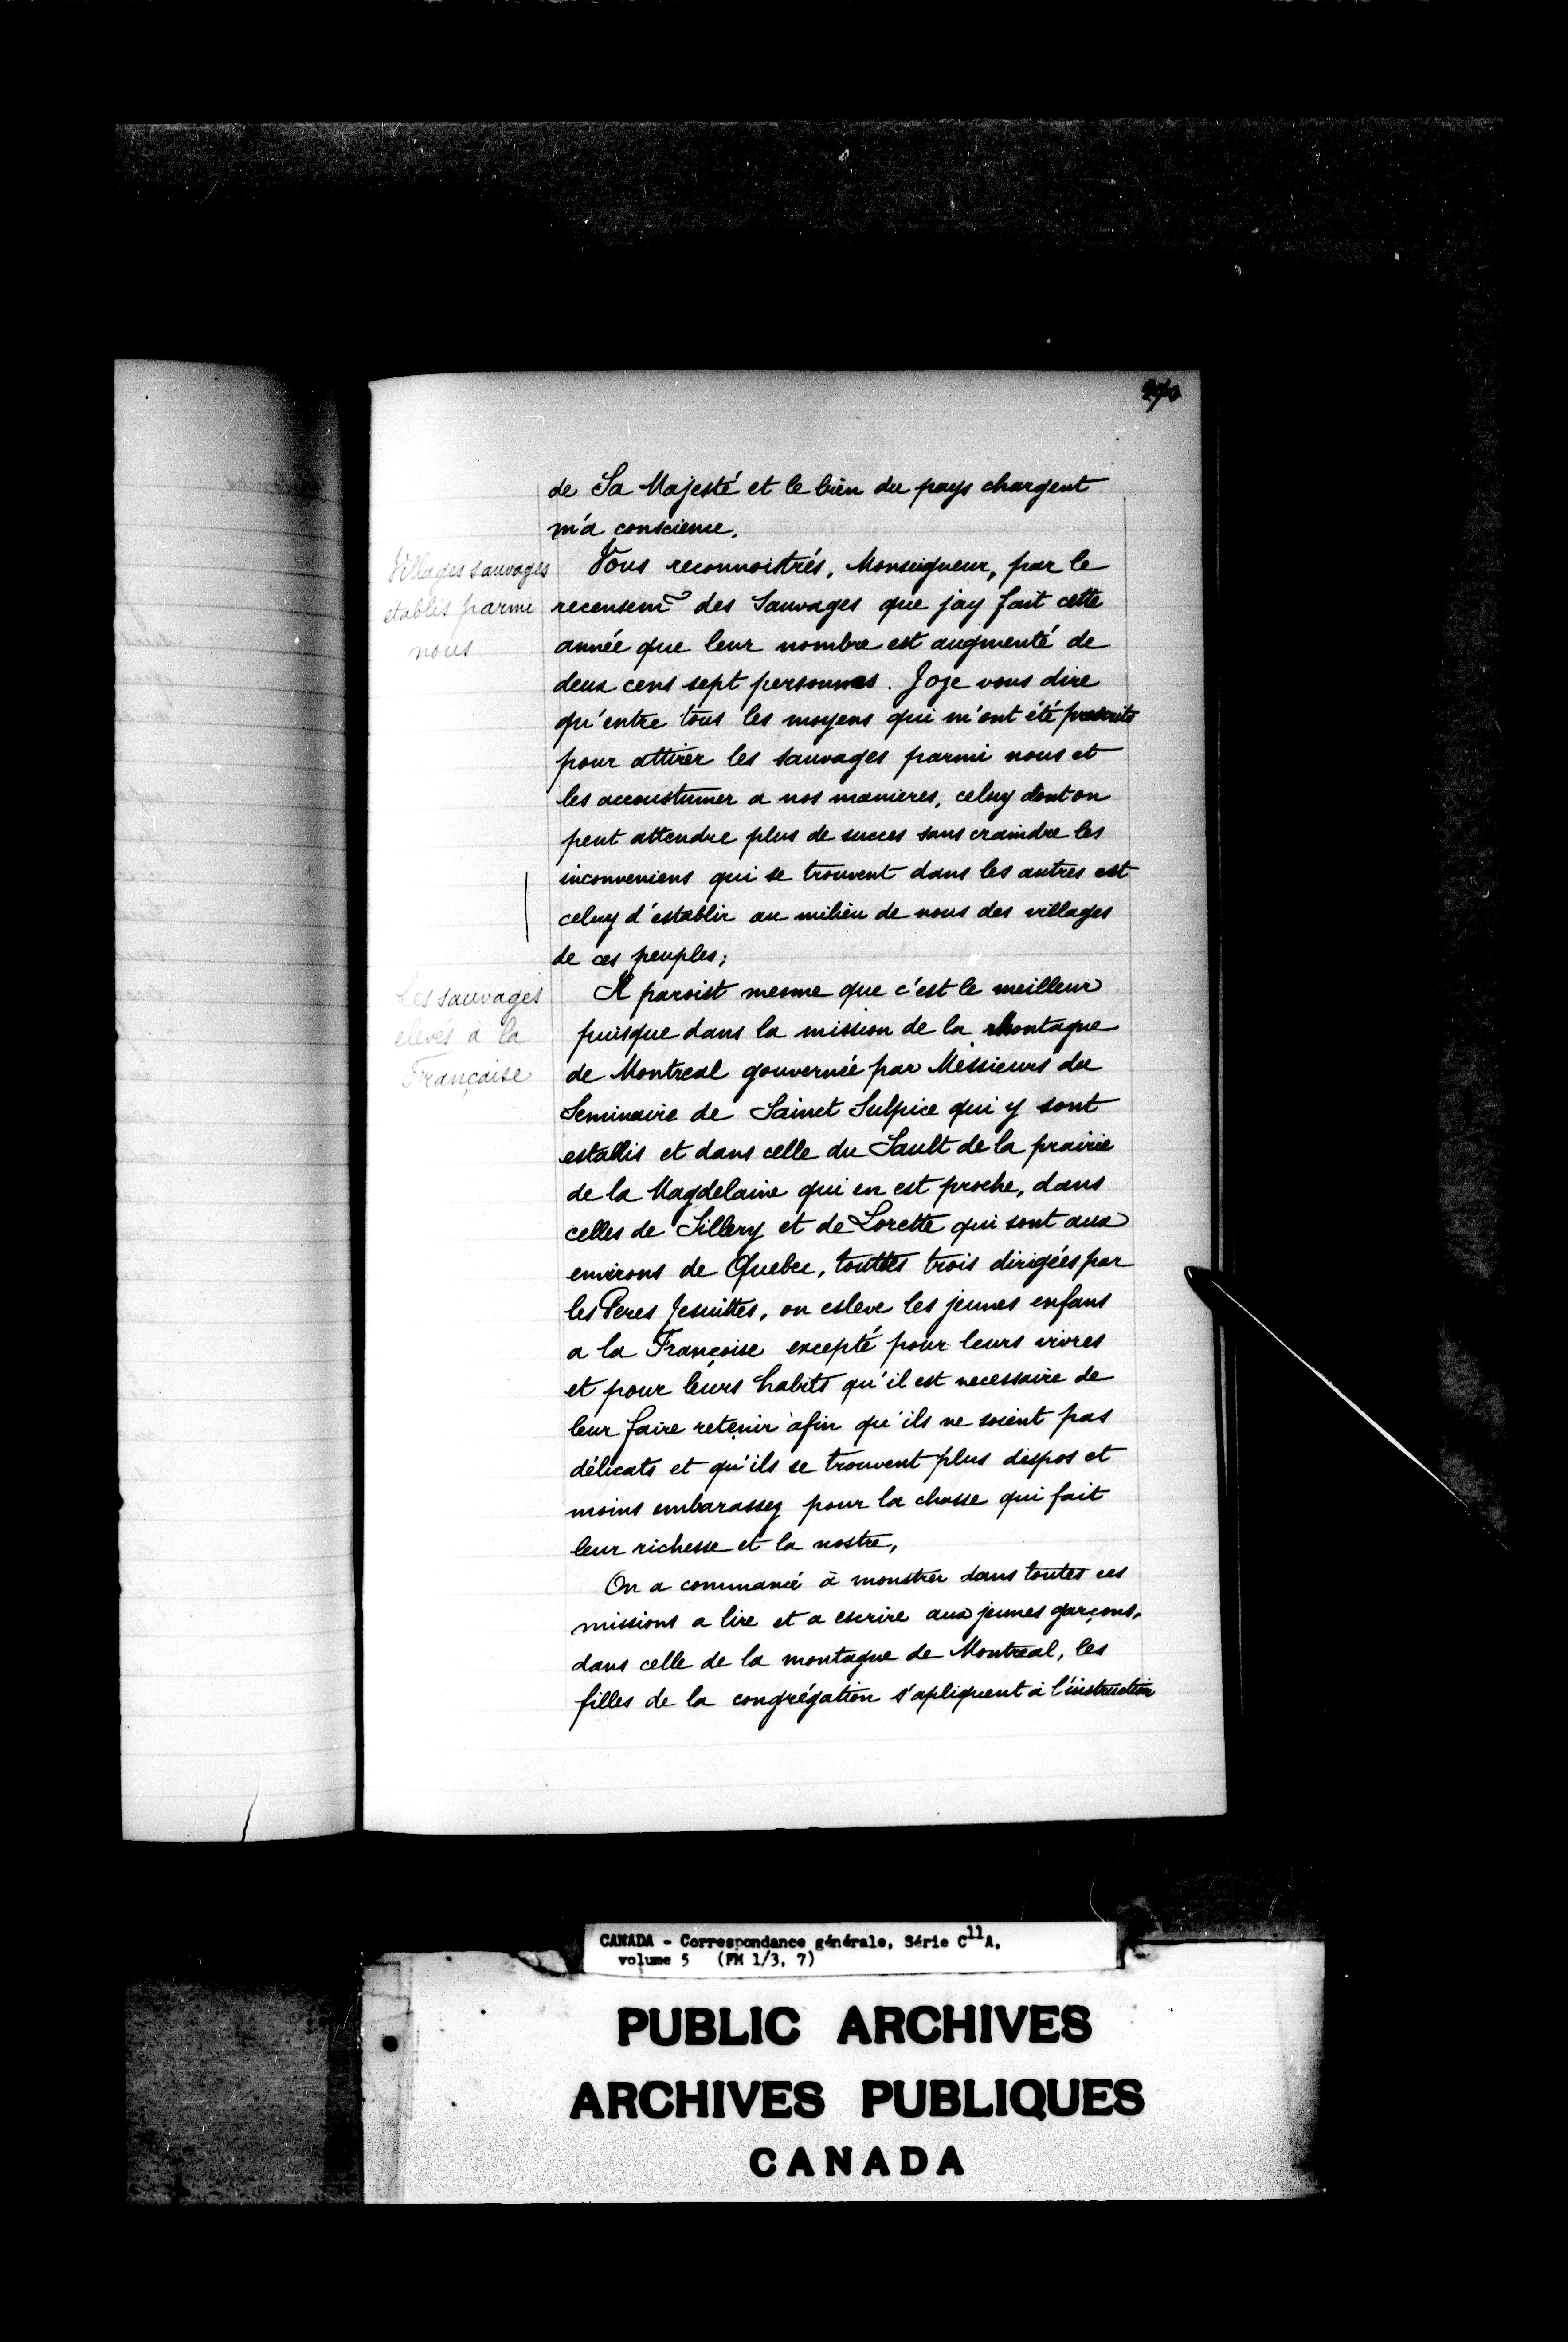 de Sa Majesté et le bien du pays chargent
m'a conscience.
Villages sauvages
établis parmi
nous
Vous reconnoistrés, Monseigneur, par le
recensemt des Sauvages que jay fait cette
année que leur nombre est augmenté de
deux cens sept personnes. Joze vous dire
qu'entre tous les moyens qui m'ont été prescrits
pour attirer les sauvages parmi nous et
les accoustumer a nos manieres, celuy dont on
peut attendre plus de succes sans craindre les
inconveniens qui se trouvent dans les autres est
celuy d'establir au milieu de nous des villages
de ces peuples;
Les sauvages
elevés à la
Française
Il paroist mesme que c'est le meilleur
puisque dans la mission de la Montagne
de Montreal gouvernée par Messieurs du
Seminaire de Sainct Sulpice qui y sont
establis et dans celle du Sault de la prairie
de la Magdelaine qui en est proche, dans
celles de Sillery et de Lorette qui sont aux
environs de Quebec, touttes trois dirigées par
les Peres Jesuittes, on esleve les jeunes enfans
a la Françoise excepté pour leurs vivres
et pour leurs habits qu'il est necessaire de
leur faire retenir afin qu'ils ne soient pas
délicats et qu'ils se trouvent plus dispos et
moins embarassez pour la chasse qui fait
leur richesse et la nostre,
On a commancé à monstrer dans toutes ces
missions a lire et a escrire aux jeunes garçons,
dans celle de la montagne de Montreal, les
filles de la congrégation s'apliquent à l'instruction
CANADA - Correspondance générale, Série C11A,
volume 5 (FM 1/3, 7)
PUBLIC ARCHIVES
ARCHIVES PUBLIQUES
CANADA